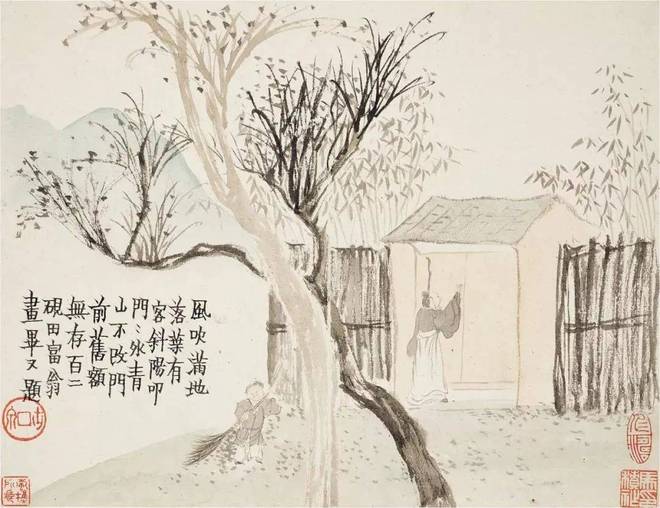 風吹滿地
落葉有
客斜陽叩
門〻外青
山不改門
前舊額
無存百二
硯田富翁
畫畢又題